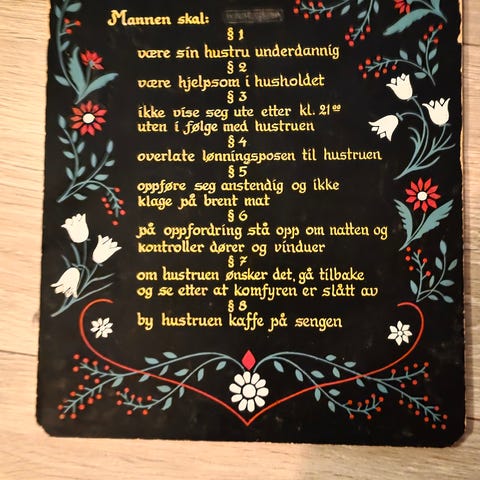 Mannen skal:
§ 1
være sin hustru underdannig
§ 2
være hjelpsom i husholdet
§ 3
ikke vise seg ute etter kl. 21⁰⁰
uten i følge med hustruen
§ 4
overlate lønningsposen til hustruen
§ 5
oppføre seg anstendig og ikke
klage på brent mat
§ 6
på oppfordring stå opp om natten og
kontroller dører og vinduer
§ 7
om hustruen ønsker det, gå tilbake
og se etter at komfyren er slått av
§ 8
by hustruen kaffe på sengen